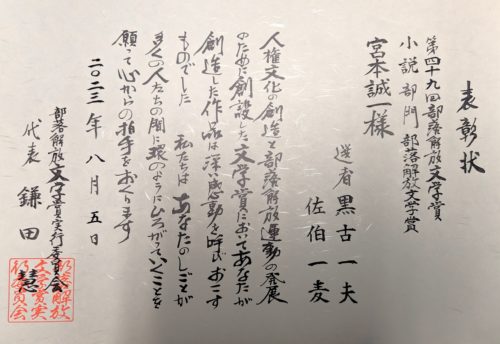 表彰状
第四十九回部落解放文学賞
小説部門 部落解放文学賞
宮本誠一様
選者 黒古一夫
佐伯一麦
人権文化の創造と部落解放運動の発展
のために創設した文学賞においてあなたが
創造した作品は深い感動を呼びおこす
ものでした 私たちはあなたのしごとが
多くの人たちの間に環のようにひろがっていくことを
願って心からの拍手をおくります
二〇二三年八月五日
部落解放文学賞実行委員会
代表 鎌田慧
部落解放
文学賞実
行委員会